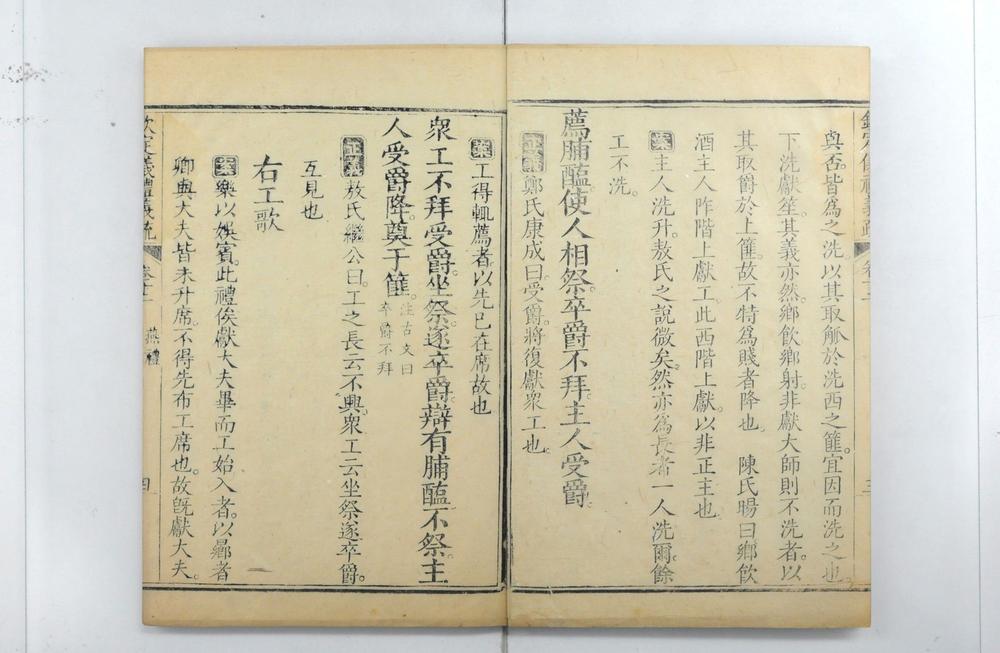 與否皆爲之洗以其取觚於洗西之篚宜因而洗之也
下洗獻笙其義亦然鄉飲鄉射非獻大師則不洗者以
其取爵於上篚故不特爲賤者降也 陳氏暘曰鄉飲
酒主人阼階上獻工此西階上獻以非正主也
案主人洗升敖氏之說微矣然亦爲長者一人洗爾餘
工不洗
薦脯醢使人相祭卒爵不拜主人受爵
正義鄭氏康成曰受爵將復獻衆工也
案工得輒薦者以先已在席故也
衆工不拜受爵坐祭遂卒爵辯有脯醢不祭主
人受爵降奠于篚注古文曰卒爵不拜
正義敖氏繼公曰工之長云不興衆工云坐祭遂卒爵
互見也
右工歌
案樂以娛賓此禮俟獻大夫畢而工始入者以曏者
卿與大夫皆未升席不得先布工席也故旣獻大夫
燕禮
四